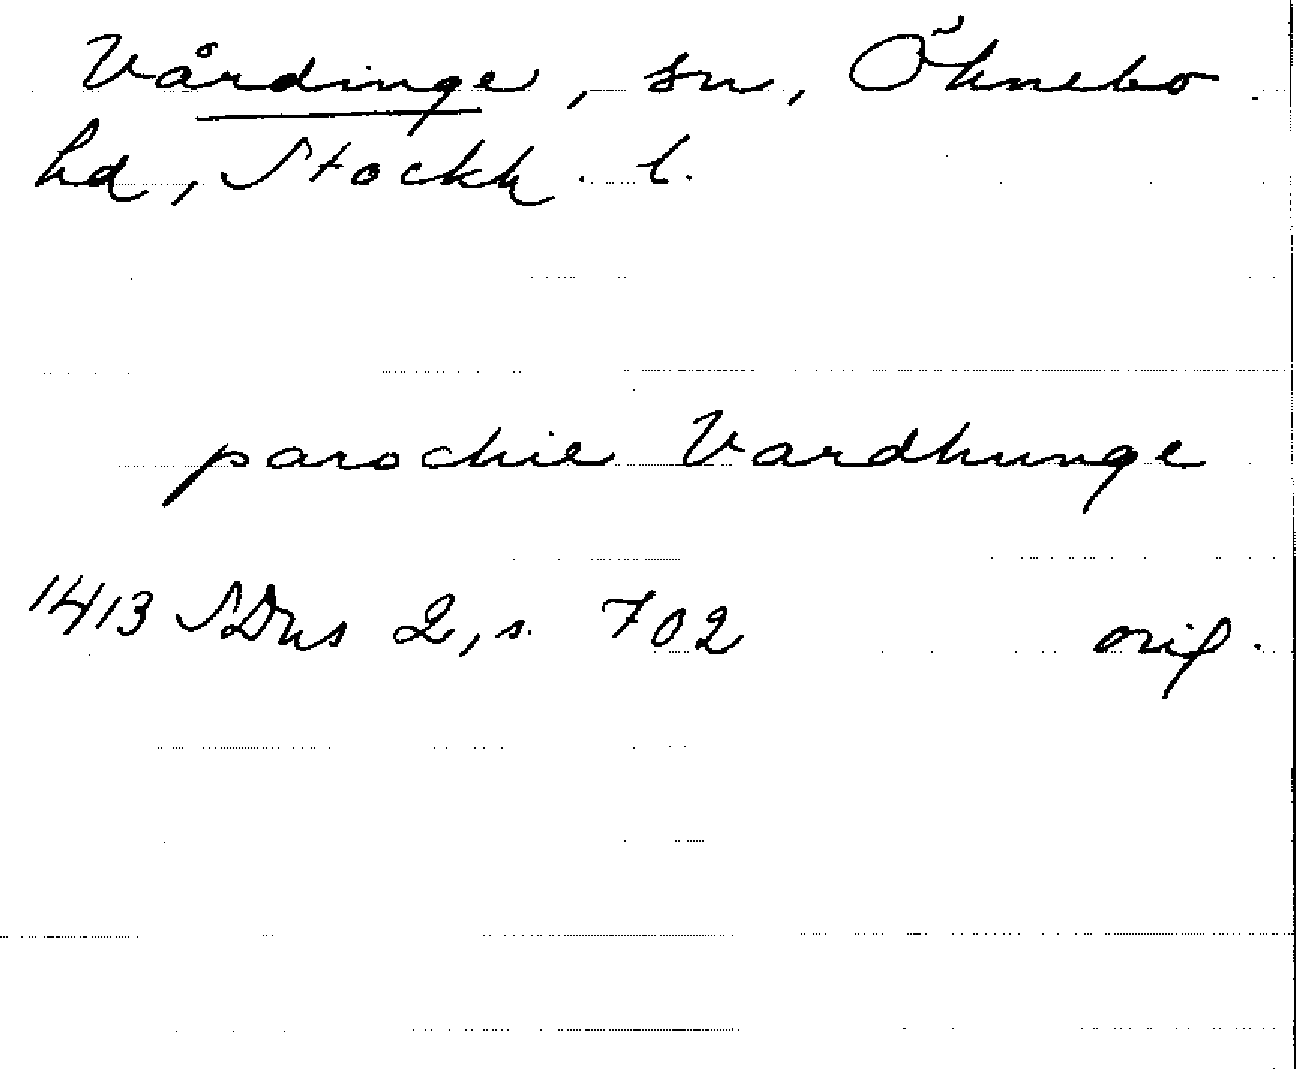 Vårdinge, sn, Öknebo
hd, Stockh. l.
parochie Vardhunge
1413 SDns 2, s. 702 orig.